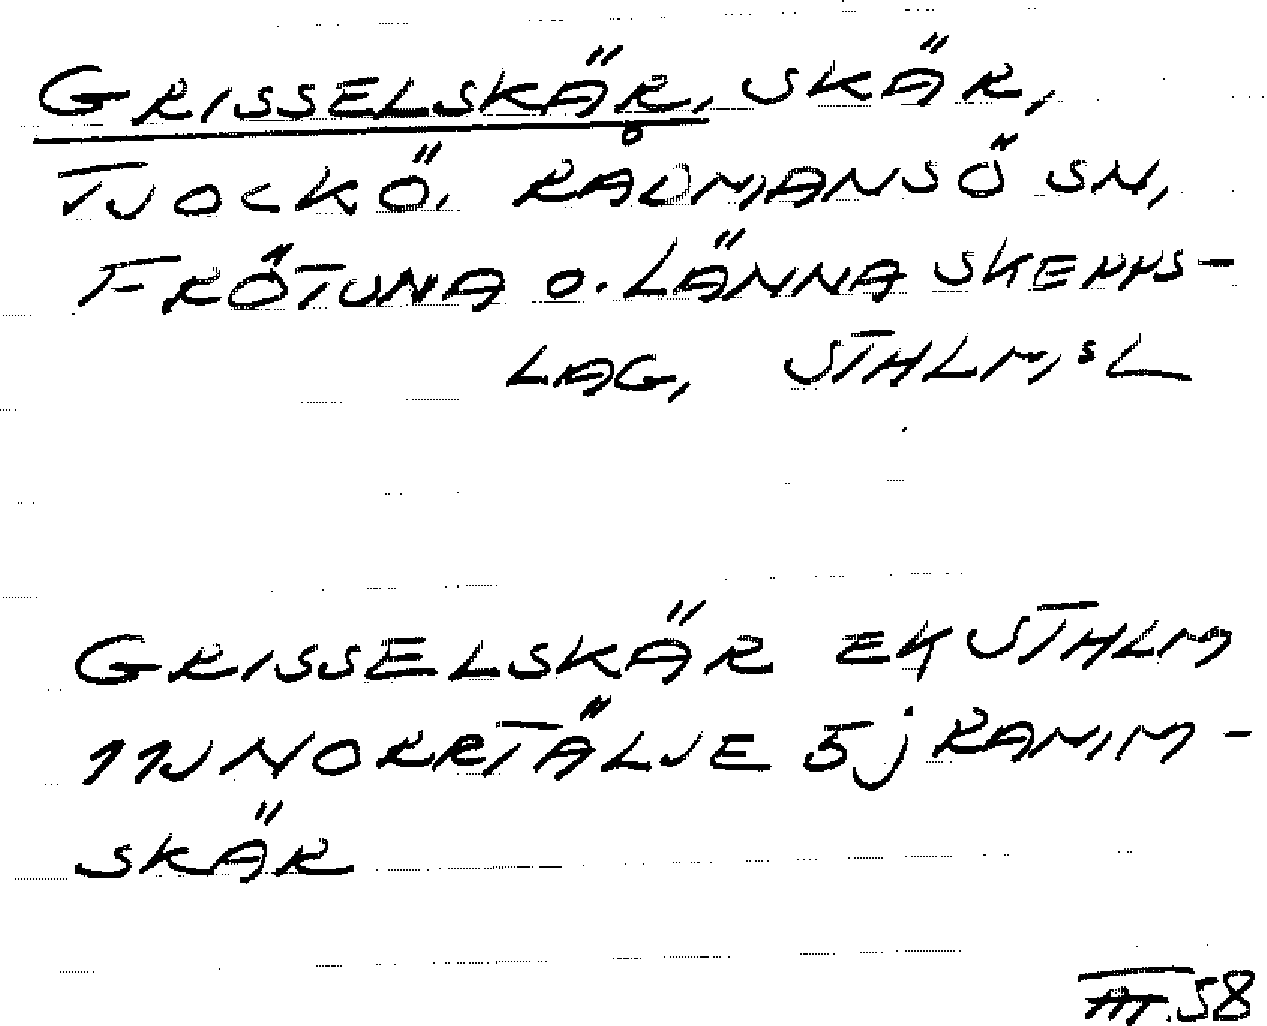 GRISSELSKÄR, SKÄR,
TJOCKÖ. RÅDMANSÖ SN,
FRÖTUNA O. LÄNNA SKEPPS-
LAG, STHLMSL
GRISSELSKÄR EK STHLM
11J NORRTÄLJE 5j RAMM-
SKÄR
58